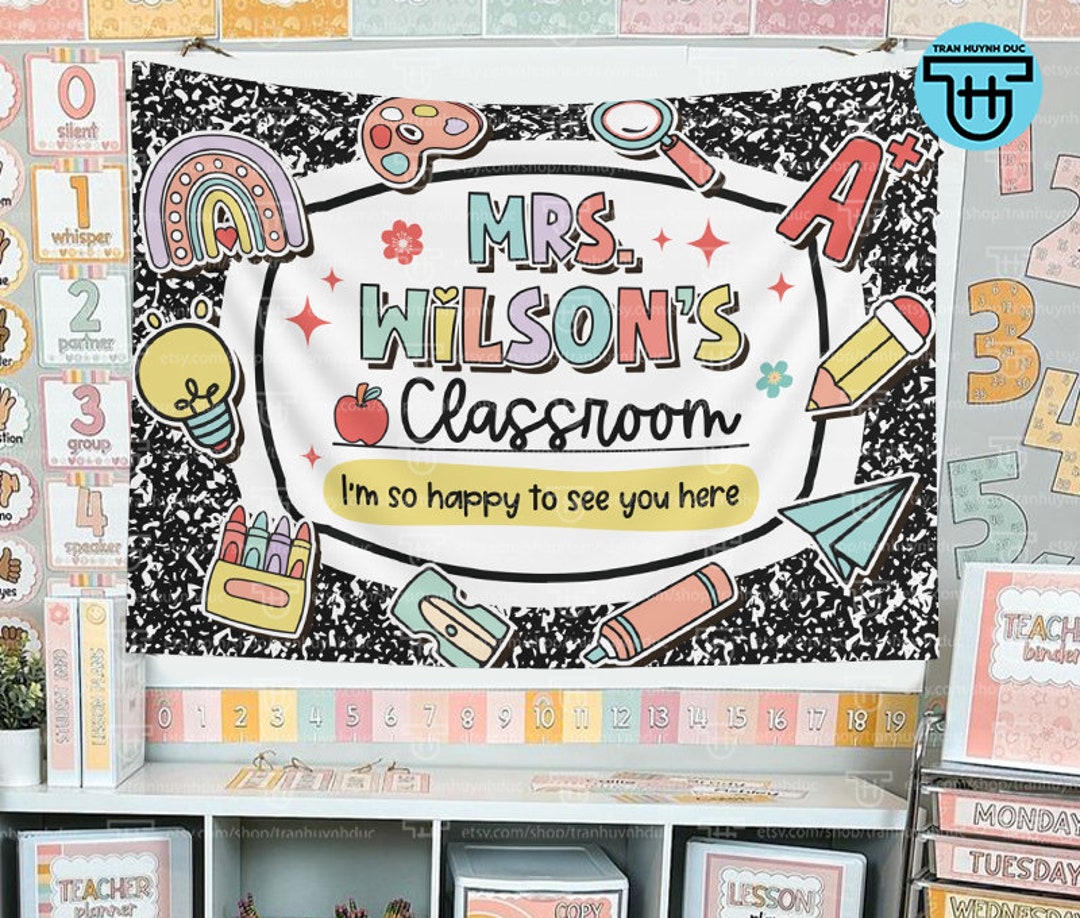 TRAN HUYNH DUC
0
silent
1
whisper
2
partner
3
group
4
speaker
A+
MRS.
WiLSON'S
Classroom
I'm so happy to see you here
1
2
3
4
5
TEACH
binder
LESSON PLANS
0 1 2 3 4 5 6 7 8 9 10 11 12 13 14 15 16 17 18 19
MONDAY
TUESDAY
WEDNESDAY
TEACHER
planner
LESSON
COPY
etsy.com/shop/tranhuynhduc